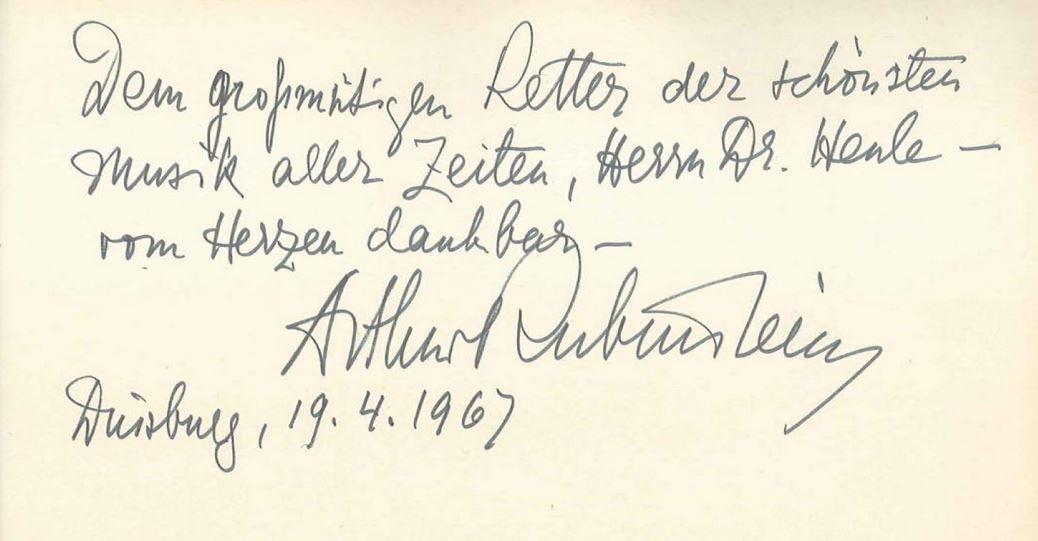 Dem großmütigen Retter der schönsten
Musik aller Zeiten, Herrn Dr. Henle –
vom Herzen dankbar –
Arthur Rubinstein
Duisburg, 19.4.1967